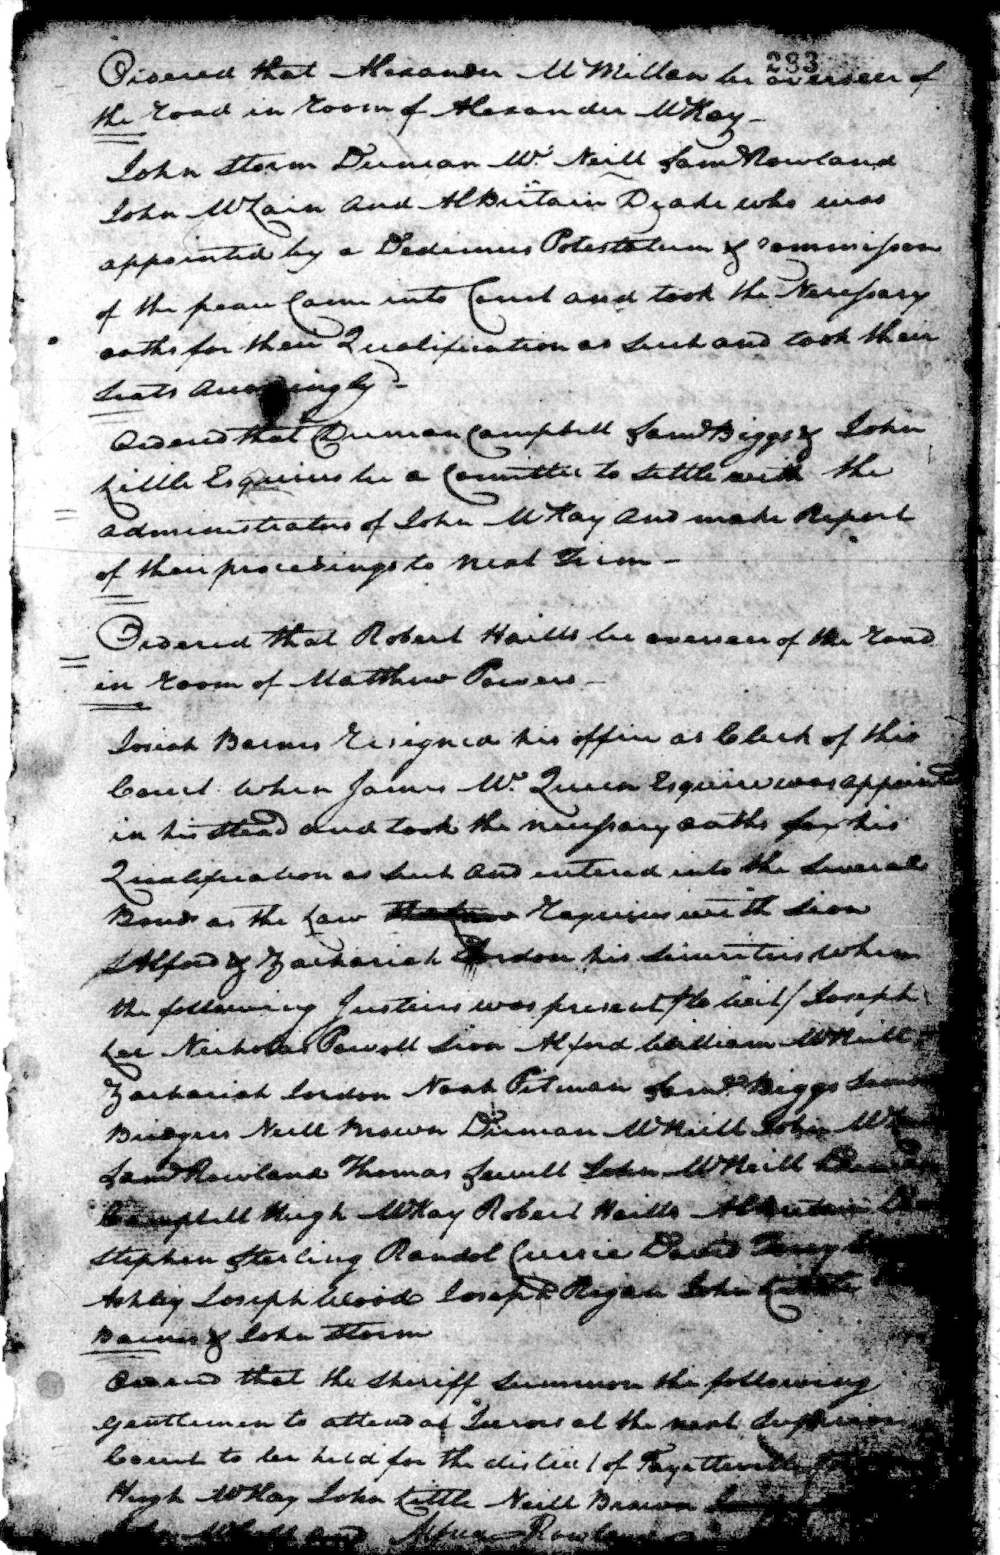 283
Ordered that Alexander McMillan be overseer of
the road in room of Alexander McKay
John Storm Duncan Mc Neill Saml Rowland
John McLain and AlBritain Drake who was
appointed by a Dedimus Potestatum & Commission
of the peace Came into Court and took the Necessary
oaths for their Qualification as such and took their
Seats Accordingly
Ordered that Duncan Campbell Saml Biggs & John
Little Esquires be a Committee to settle with the
administrators of John McKay and make Report
of their proceedings to next Term
Ordered that Robert Haills be overseer of the road
in room of Matthew Powers
Josiah Barnes Resigned his office as Clerk of this
Court when James Mc Queen Esquire was appointed
in his stead and took the necessary oaths for his
Qualification as such and entered into the several
Bonds as the Law Requires with Sion
Alford & Zachariah Jordon his Securities when
the following Justices was present /to wit/ Joseph
Lee Nicholas Powell Sion Alford William McNeill
Zachariah Jordon Noah Pitman Saml Biggs
Bridgers Neill Brown Duncan McNeill John
Saml Rowland Thomas Sewell John McNeill Duncan
Campbell Hugh McKay Robert Haills AlBritain
Stephen Sterling Randol Currie David
Ashley Joseph Wood Joseph Regan John Little
Barnes & John Storm
Ordered that the Sheriff Summon the following
Gentlemen to attend as Jurors at the next Superior
Court to be held for the district of Fayetteville
Hugh McKay John Little Neill Brown
and Rowland